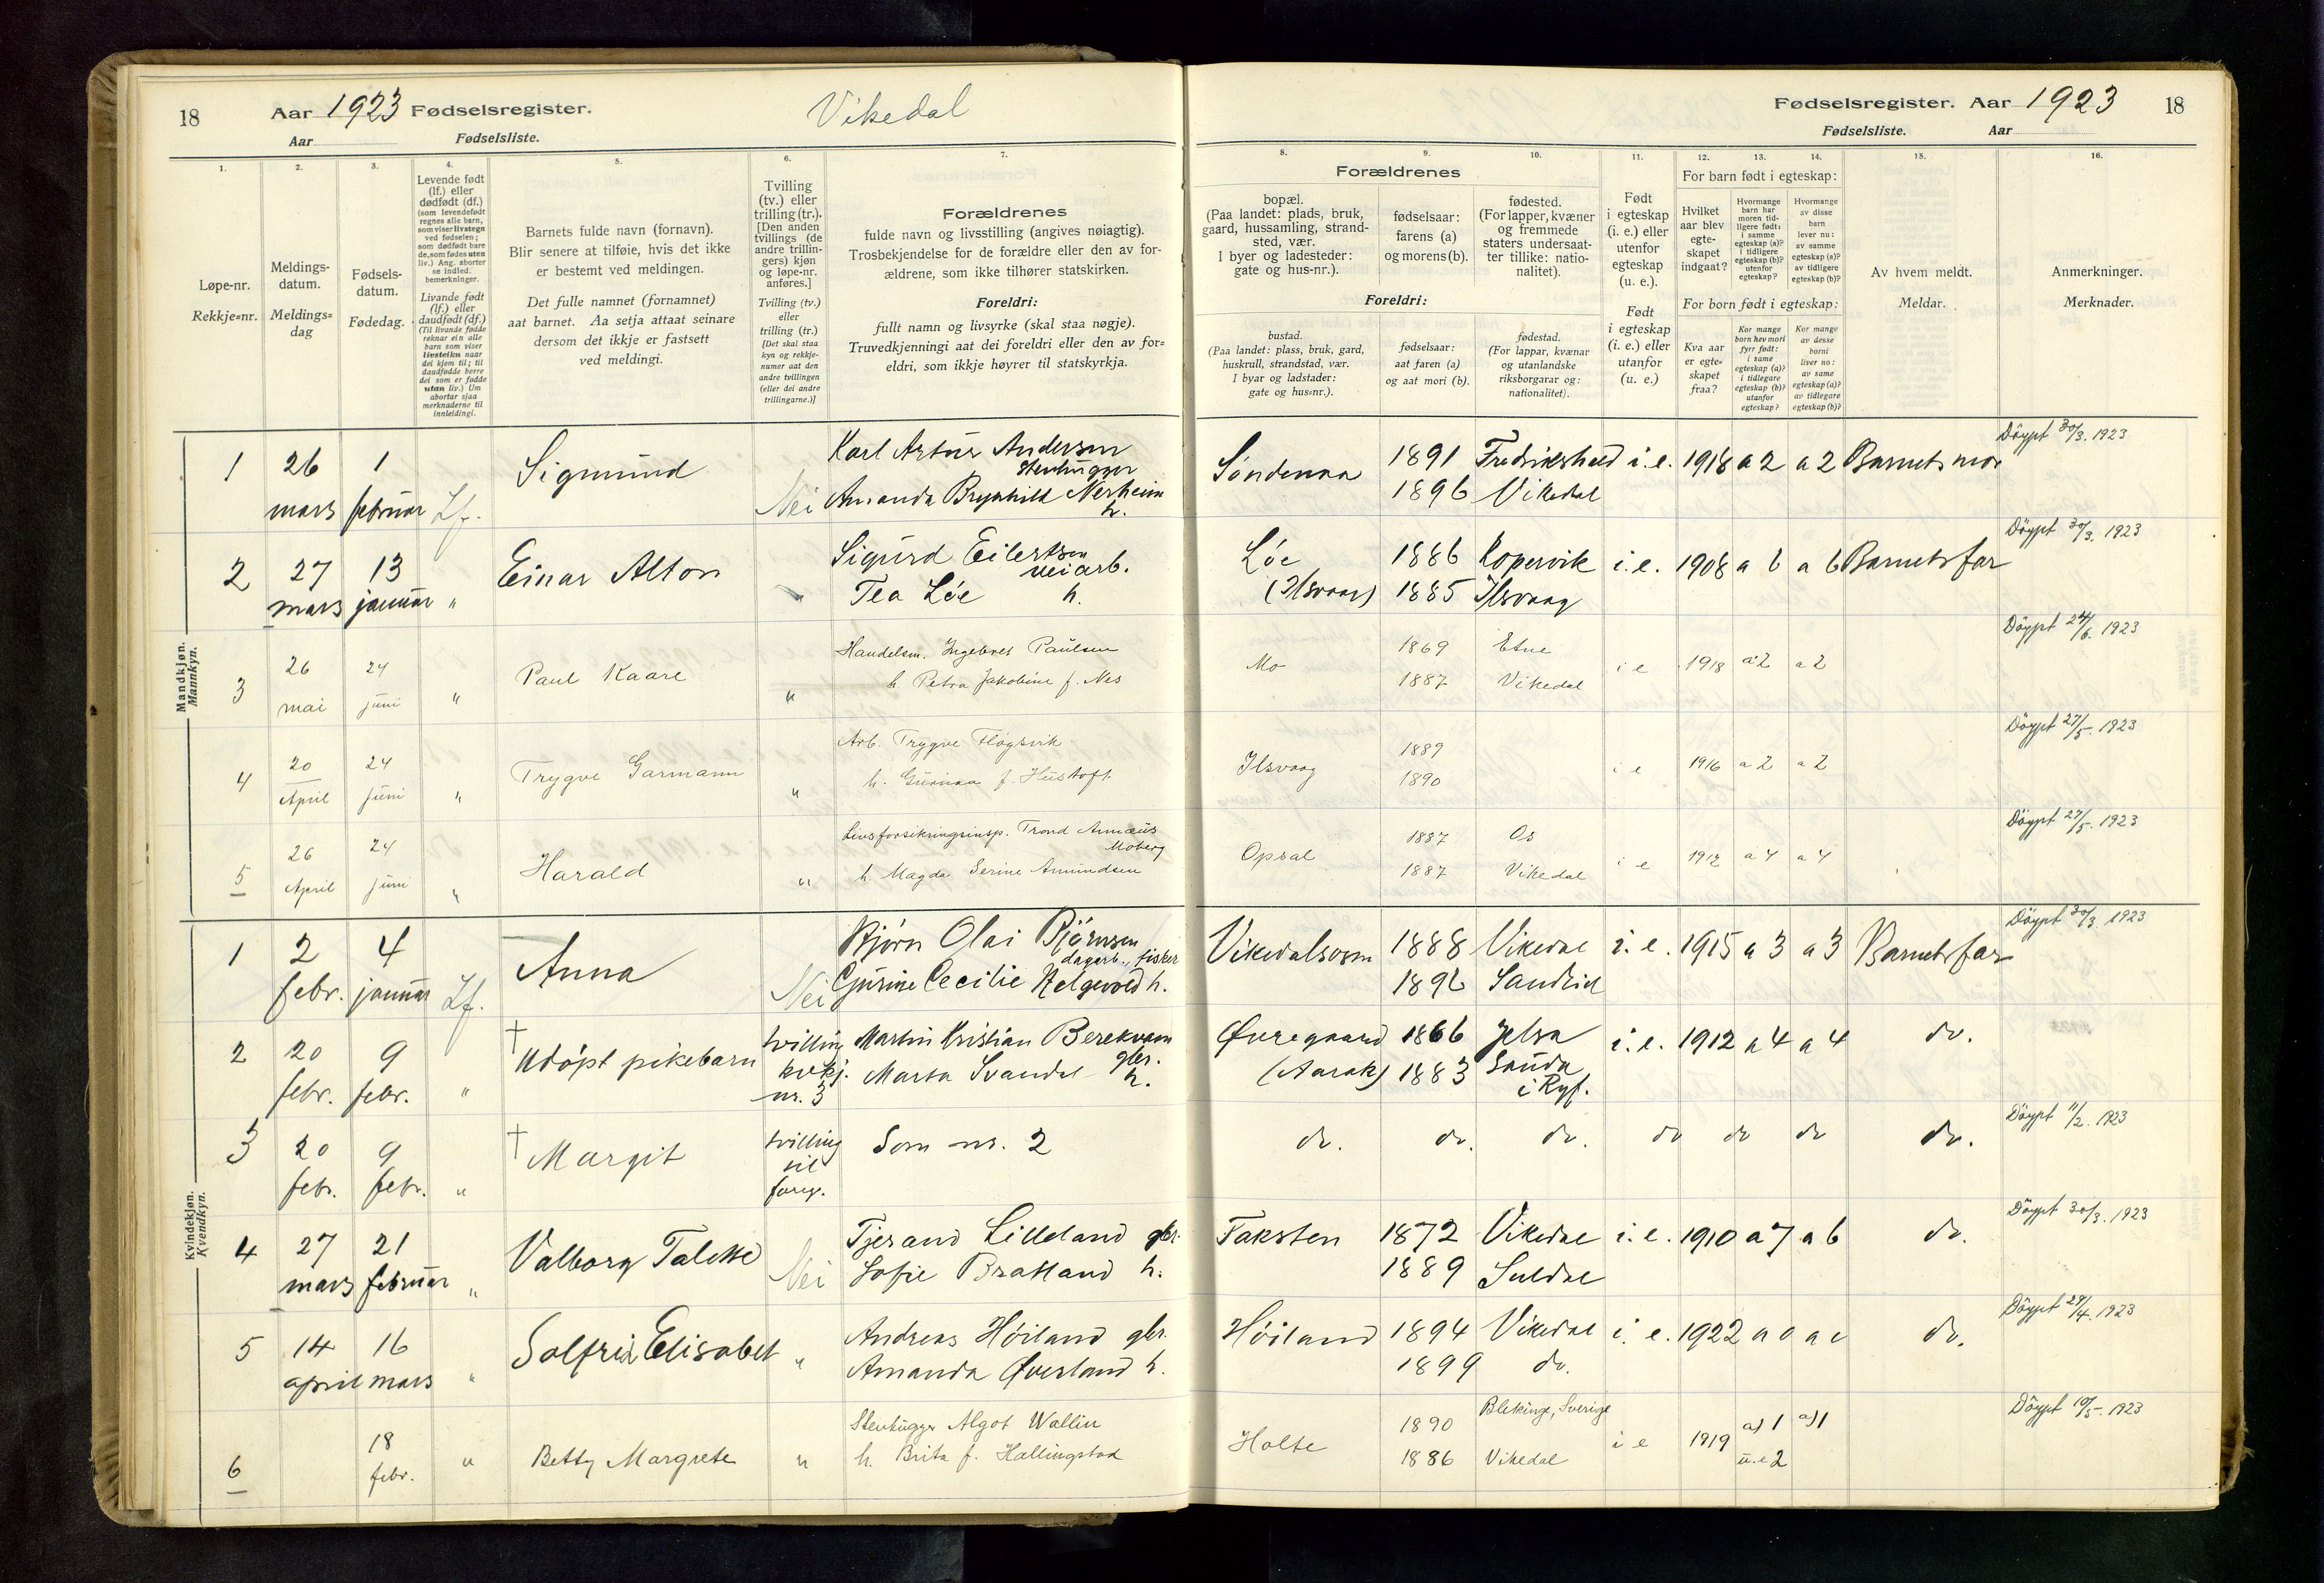 18 Aar 1923 Fødselsregister. Vikedal
Aar Fødselsliste.
Fødselsregister. Aar 1923 18
Fødselsliste. Aar
1. 2. 3. 4. 5. 6. 7.
8. 9. 10. 11. 12. 13. 14. 15. 16.
Løpe-nr.
Rekkje=nr.
Meldings-
datum.
Meldings=
dag
Fødsels-
datum.
Fødedag.
Levende født
(lf.) eller
dødfødt (df.)
(som levendefødt
regnes alle barn,
som viser livstegn
ved fødselen;
som dødfødt bare
de, som fødes uten
liv.) Ang. aborter
se indled.
bemerkninger.
Livande født
(lf.) eller
daudfødt (df.)
(Til livande fødde
reknar ein alle
barn som viser
livsteikn naar
dei kjem til; til
daudfødde berre
dei som er fødde
utan liv.) Um
abortar sjaa
merknaderne til
innleidingi.
Barnets fulde navn (fornavn).
Blir senere at tilføie, hvis det ikke
er bestemt ved meldingen.
Det fulle namnet (fornamnet)
aat barnet. Aa setja attaat seinare
dersom det ikkje er fastsett
ved meldingi.
Tvilling
(tv.) eller
trilling (tr.).
[Den anden
tvillings (de
andre trillin-
gers) kjøn
og løpe-nr.
anføres.]
Tvilling (tv.)
eller
trilling (tr.)
[Det skal staa
kyn og rekkje-
numer aat den
andre tvillingen
(eller dei andre
trillingarne.)]
Forældrenes
fulde navn og livsstilling (angives nøiagtig).
Trosbekjendelse for de forældre eller den av for-
ældrene, som ikke tilhører statskirken.
Foreldri:
fullt namn og livsyrke (skal staa nøgje).
Truvedkjenningi aat dei foreldri eller den av for=
eldri, som ikkje høyrer til statskyrkja.
Forældrenes
bopæl.
(Paa landet: plads, bruk,
gaard, hussamling, strand-
sted, vær.
I byer og ladesteder:
gate og hus-nr.).
fødselsaar:
farens (a)
og morens (b).
fødested.
(For lapper, kvæner
og fremmede
staters undersaat-
ter tillike: natio-
nalitet).
Foreldri:
bustad.
(Paa landet: plass, bruk, gard,
huskrull, strandstad, vær.
I byar og ladstader:
gate og hus=nr.).
fødselsaar:
aat faren (a)
og aat mori (b).
fødestad.
(For lappar, kvænar
og utanlandske
riksborgarar og:
nationalitet).
Født
i egteskap
(i. e.) eller
utenfor
egteskap
(u. e.).
Født
i egteskap
(i. e.) eller
utanfor
(u. e.)
For barn født i egteskap:
Hvilket
aar blev
egte-
skapet
indgaat?
Hvormange
barn har
moren tid-
ligere født:
i samme
egteskap (a)?
i tidligere
egteskap (b)?
utenfor
egteskap?
Hvormange
av disse
barn
lever nu:
av samme
egteskap (a)?
av tidligere
egteskap (b)?
For born født i egteskap:
Kva aar
er egte-
skapet
fraa?
Kor mange
born hev mori
fyrr født:
i same
egteskap (a)?
i tidlegare
egteskap (b)?
utanfor
egteskap?
Kor mange
av desse
borni
liver no:
av same
egteskap (a)?
av tidlegare
egteskap (b)?
Av hvem meldt.
Meldar.
Anmerkninger.
Merknader.
Mandkjøn.
Mannkyn.
1 26 mars 1 februar Lf. Sigmund Nei Karl Artur Andersen
Stenhugger
Amanda Brynhild Nerheim h.
Söndenaa 1891 Fredrikshald i. e. 1918 a 2 a 2 Barnets mor Döypt 30/3. 1923
1896 Vikedal
2 27 mars 13 januar " Einar Alton " Sigurd Eilertsen
veiarb.
Tea Löe h.
Löe 1886 Kopervik i. e. 1908 a 6 a 6 Barnets far Döypt 30/3. 1923
(Ilsvaag) 1885 Ilsvaag
3 26 mai 24 juni " Paul Kaare " Handelsm. Ingebret Paulsen
h. Petra Jakobine f. Nes
Mo 1869 Etne i e 1918 a 2 a 2 Döypt 24/6. 1923
1887 Vikedal
4 20 April 24 juni " Trygve Garmann " Arb. Trygve Flogsvik
h. Gurina f. Hustoft
Ilsvaag 1889 i e 1916 a 2 a 2 Döypt 27/5. 1923
1890
5 26 April 24 juni " Harald " Livsforsikringsinsp. Trond Annæus
Moberg
h. Magda Serine Amundsen
Opsal 1887 Os i e 1912 a 4 a 4 Döypt 27/5. 1923
1887 Vikedal
Kvindekjøn.
Kvendkyn.
1 2 febr. 4 januar Lf. Anna Nei Bjørn Olai Björnsen
dagarb., fisker
Gurine Cecilie Helgevold h.
Vikedalsosen 1888 Vikedal i. e. 1915 a 3 a 3 Barnets far Döypt 30/3. 1923
1896 Sandeid
2 20 febr. 9 febr. " † Udöpt pikebarn tvilling
kvkj.
nr. 3
Martin Kristian Berekvam
gbr.
Marta Svandal h.
Øvregaard 1866 Jelsa i. e. 1912 a 4 a 4 do.
(Aarak) 1883 Sauda
i Ryf.
3 20 febr. 9 febr. " † Margit tvilling
til
foreg.
Som nr. 2
do. do. do. do do do do. Döypt 11/2. 1923
4 27 mars 21 februar " Valborg Talette Nei Tjerand Lilleland gbr.
Sofie Bratland h.
Faksten 1872 Vikedal i. e. 1910 a 7 a 6 do. Döypt 30/3. 1923
1889 Suldal
5 14 april 16 mars " Solfrid Elisabet " Andreas Höiland gbr.
Amanda Øverland h.
Höiland 1894 Vikedal i. e. 1922 a 0 a 0 do. Döypt 29/4. 1923
1899 do.
6 18 febr. " Betty Margrete " Stenhugger Algot Wallin
h. Brita f. Hallingstad
Holte 1890 Blekinge, Sverige i e 1919 a) 1 a) 1 Döypt 10/5. 1923
1886 Vikedal u. e 2